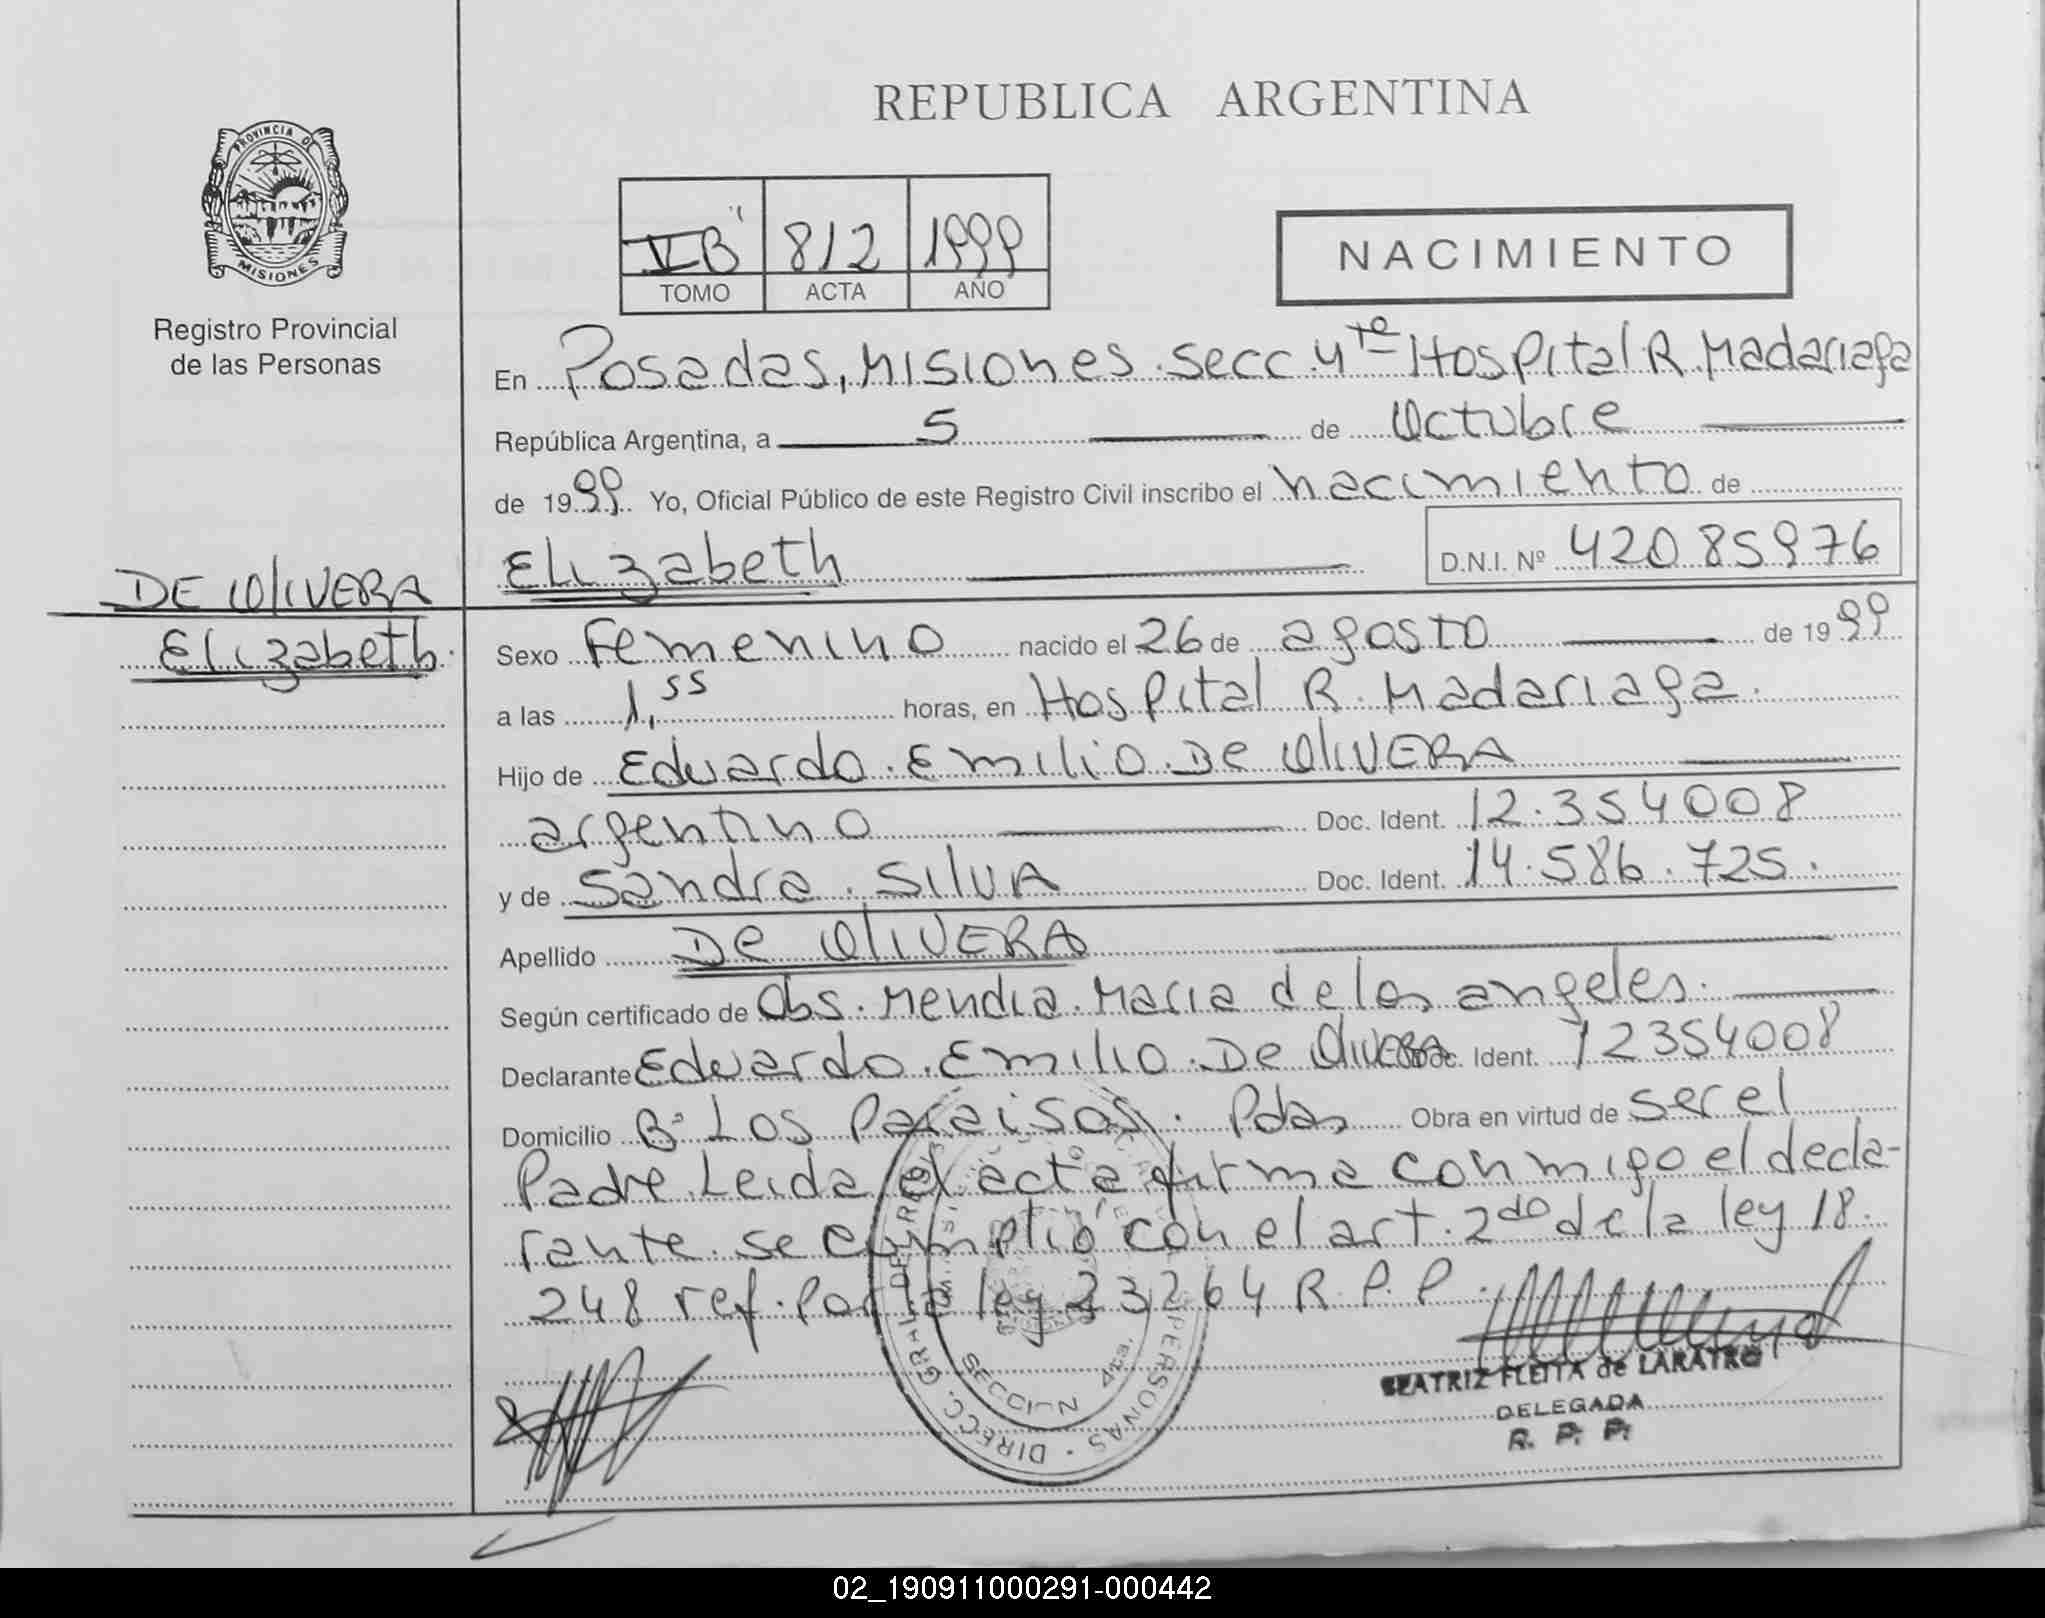 REPUBLICA ARGENTINA
PROVINCIA DE
MISIONES
Registro Provincial
de las Personas
V B" 812 1999
TOMO ACTA AÑO
NACIMIENTO
En Posadas, Misiones. Secc. 4ta Hospital R. Madariaga
República Argentina, a 5 de Octubre
de 1999. Yo, Oficial Público de este Registro Civil inscribo el nacimiento de
Elizabeth D.N.I. Nº 42085976
DE OLIVERA
Elizabeth.
Sexo Femenino nacido el 26 de agosto de 1999
a las 1,55 horas, en Hospital R. Madariaga.
Hijo de Eduardo. Emilio De OliVERA
argentino Doc. Ident. 12.354008
y de Sandra. SilvA Doc. Ident. 14.586.725.
Apellido De OliVERA
Según certificado de Obs. Mendia. Maria de los angeles.
Declarante Eduardo. Emilio. De OliVERA Doc. Ident. 12354008
Domicilio Bº Los Paraisos. Pdas Obra en virtud de ser el
Padre. Leida el acta firma conmigo el decla-
rante. se cumplió con el art. 2do de la ley 18.
248 ref. Por la ley 23264 R. P. P.
BEATRIZ FLEITA de LARATRO
DELEGADA
R. P. P.
DIRECC. GRAL. DE PERSONAS
SECCION 4ta.
02_190911000291-000442